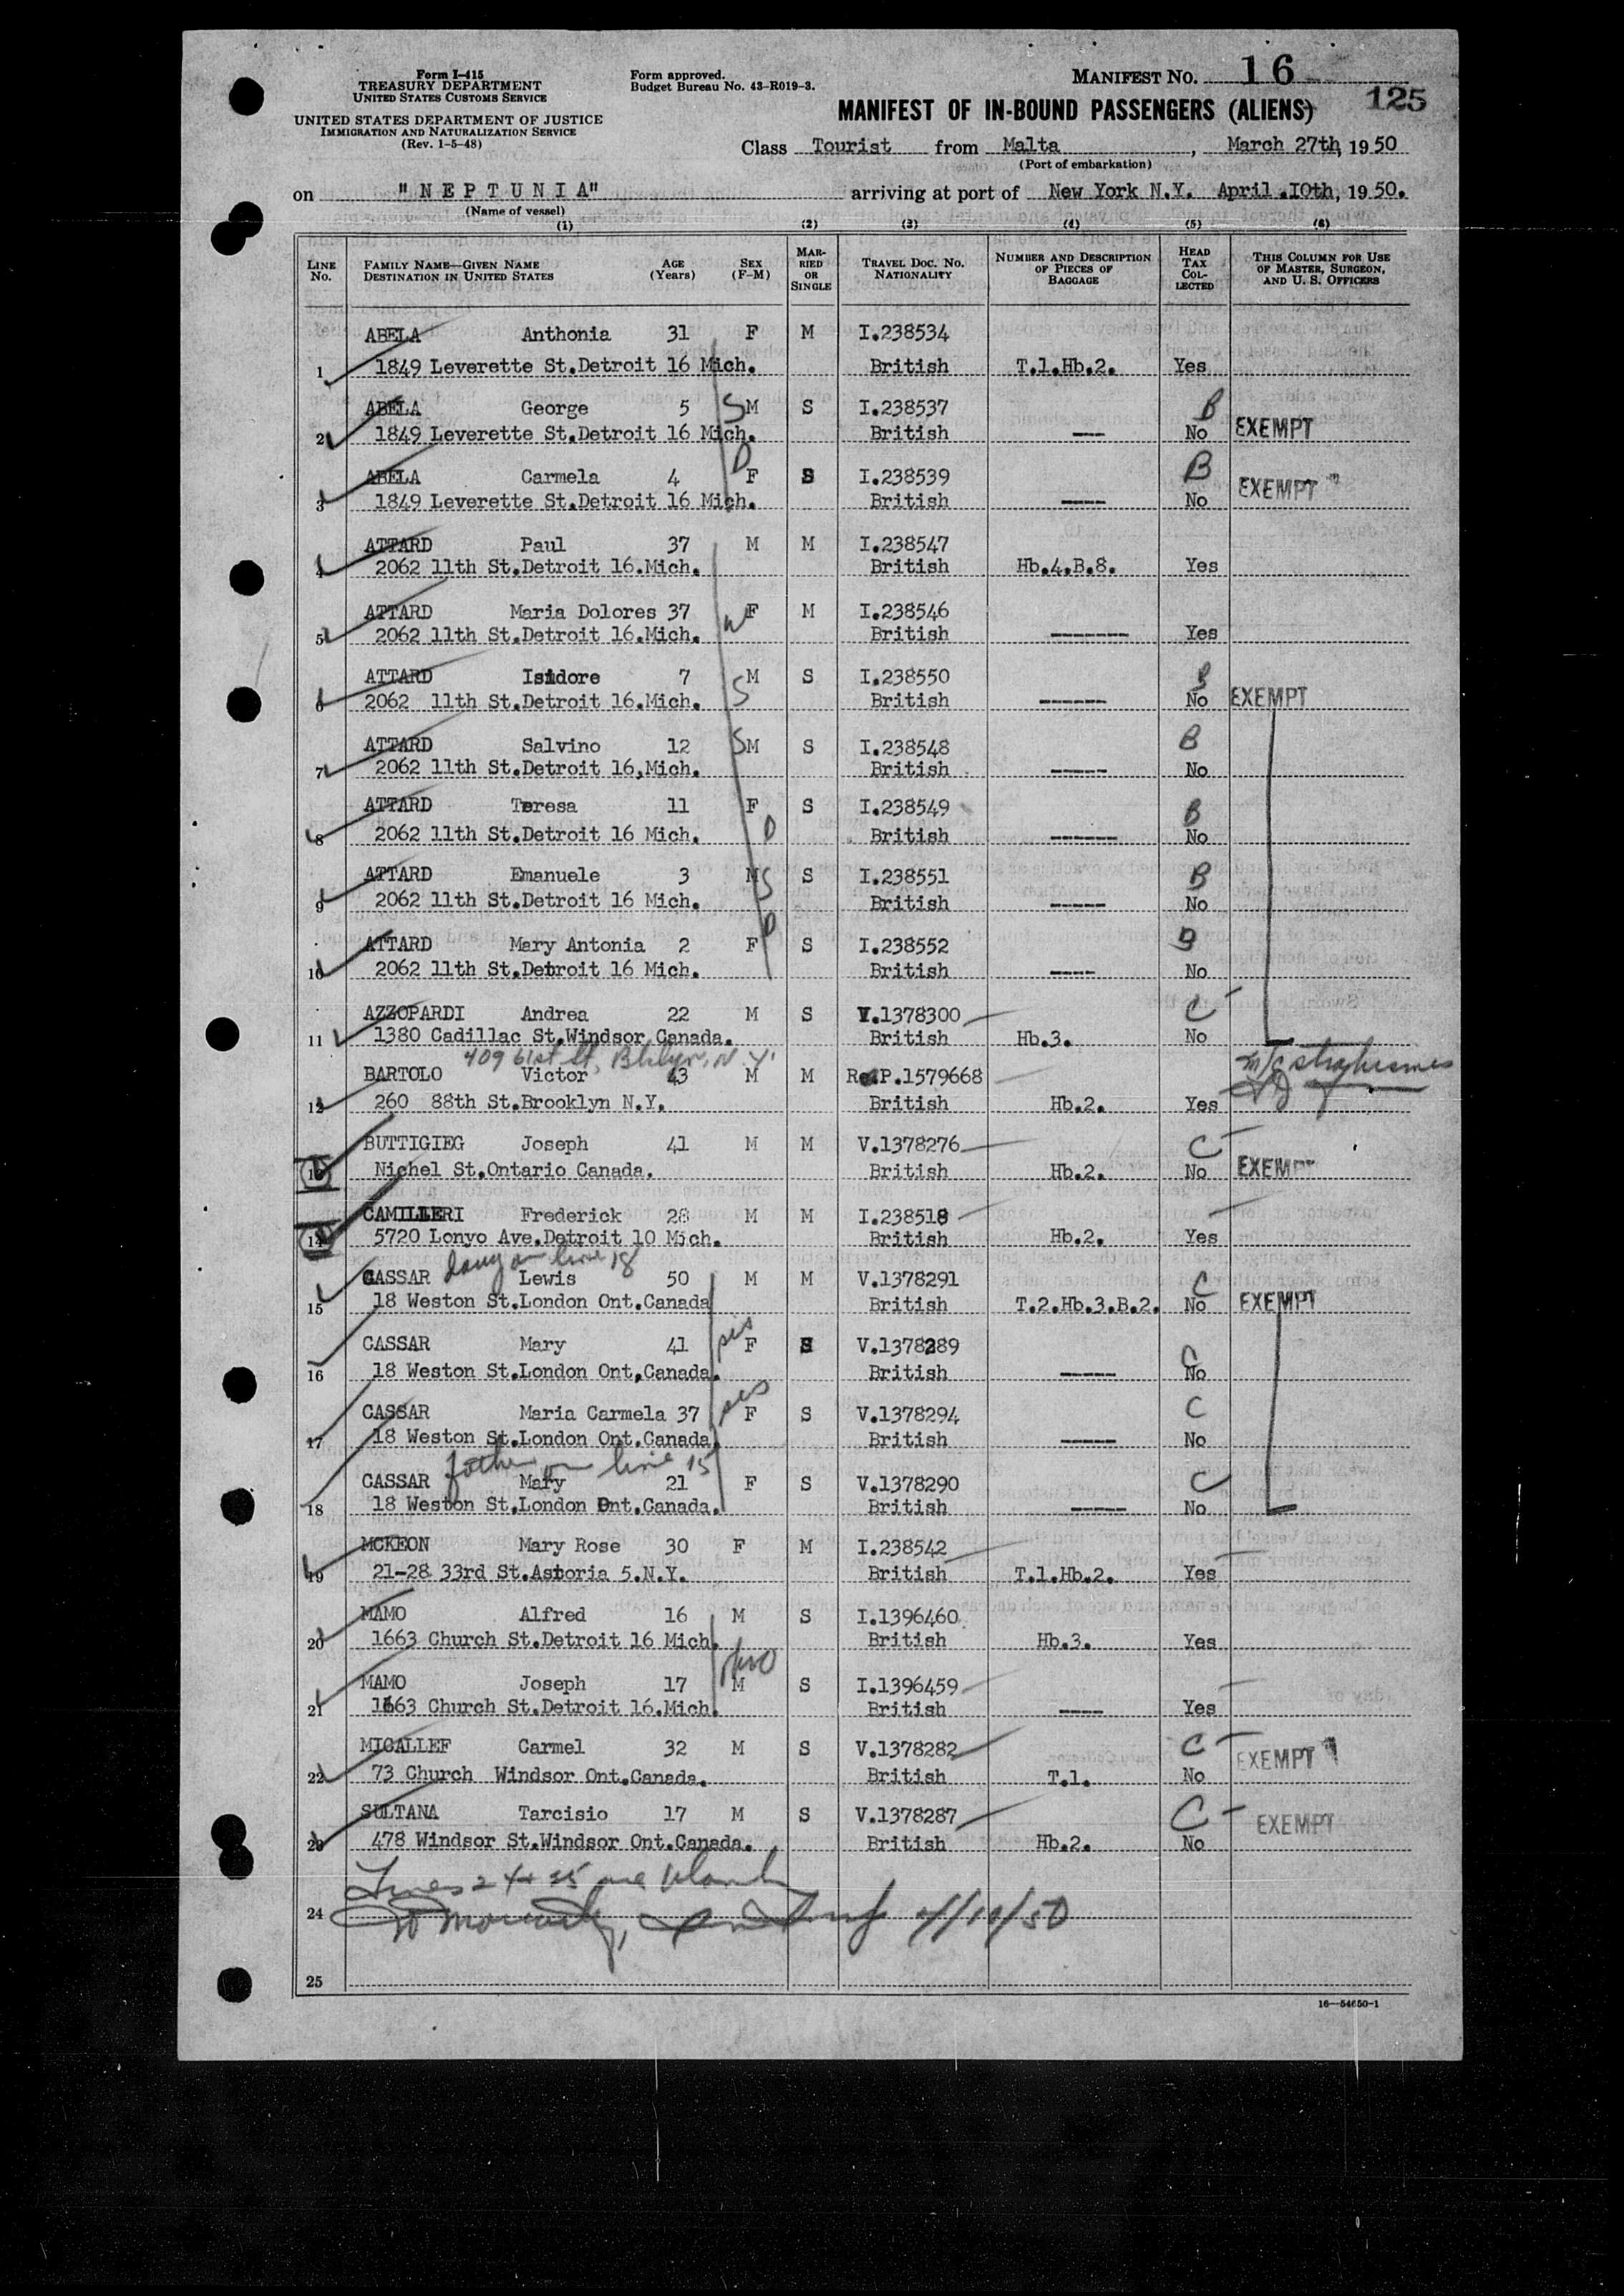 Form I-415
TREASURY DEPARTMENT
UNITED STATES CUSTOMS SERVICE
UNITED STATES DEPARTMENT OF JUSTICE
IMMIGRATION AND NATURALIZATION SERVICE
(Rev. 1-5-48)
Form approved.
Budget Bureau No. 43-R019-3.
MANIFEST NO. 16
125
MANIFEST OF IN-BOUND PASSENGERS (ALIENS)
Class Tourist from Malta, March 27th, 1950
(Port of embarkation)
on "NEPTUNIA" arriving at port of New York N.Y. April.10th, 1950.
(Name of vessel)
(1) (2) (3) (4) (5) (6)
LINE No. FAMILY NAME—GIVEN NAME DESTINATION IN UNITED STATES AGE (Years) SEX (F-M) MARRIED OR SINGLE TRAVEL DOC. NO. NATIONALITY NUMBER AND DESCRIPTION OF PIECES OF BAGGAGE HEAD TAX COLLECTED THIS COLUMN FOR USE OF MASTER, SURGEON, AND U. S. OFFICERS
ABELA Anthonia 31 F M I.238534
1 1849 Leverette St.Detroit 16 Mich. British T.1.Hb.2. Yes
ABELA George 5 S M S I.238537 B
2 1849 Leverette St.Detroit 16 Mich. British ---- No EXEMPT
ABELA Carmela 4 D F S I.238539 B
3 1849 Leverette St.Detroit 16 Mich. British ---- No EXEMPT "
ATTARD Paul 37 M M I.238547
4 2062 11th St.Detroit 16.Mich. British Hb.4.B.8. Yes
ATTARD Maria Dolores 37 W F M I.238546
5 2062 11th St.Detroit 16.Mich. British ------- Yes
ATTARD Isidore 7 S M S I.238550 B
6 2062 11th St.Detroit 16.Mich. British ------ No EXEMPT
ATTARD Salvino 12 S M S I.238548 B
7 2062 11th St.Detroit 16,Mich. British ----- No
ATTARD Teresa 11 F S I.238549 B
8 2062 11th St.Detroit 16 Mich. D British ------ No
ATTARD Emanuele 3 M S S I.238551 B
9 2062 11th St.Detroit 16 Mich. British ----- No
ATTARD Mary Antonia 2 D F S I.238552 B
10 2062 11th St.Detroit 16 Mich. British ---- No
AZZOPARDI Andrea 22 M S V.1378300 C
11 1380 Cadillac St.Windsor Canada. British Hb.3. No
409 61st St, Bklyn, N.Y.
BARTOLO Victor 43 M M Re.P.1579668
12 260 88th St.Brooklyn N.Y. British Hb.2. Yes
BUTTIGIEG Joseph 41 M M V.1378276 C
13 Nichel St.Ontario Canada. British Hb.2. No EXEMPT
CAMILLERI Frederick 28 M M I.238518
14 5720 Lonyo Ave.Detroit 10 Mich. British Hb.2. Yes
daug on line 18
CASSAR Lewis 50 M M V.1378291 C
15 18 Weston St.London Ont.Canada British T.2.Hb.3.B.2. No EXEMPT
CASSAR Mary 41 sis F S V.1378289
16 18 Weston St.London Ont,Canada. British ----- C No
CASSAR Maria Carmela 37 sis F S V.1378294 C
17 18 Weston St.London Ont.Canada British ----- No
father on line 15
CASSAR Mary 21 F S V.1378290 C
18 18 Weston St.London Ont.Canada. British ----- No
MCKEON Mary Rose 30 F M I.238542
19 21-28 33rd St.Astoria 5.N.Y. British T.1.Hb.2. Yes
MAMO Alfred 16 M S I.1396460
20 1663 Church St.Detroit 16 Mich. British Hb.3. Yes
MAMO Joseph 17 M S I.1396459
21 1663 Church St.Detroit 16.Mich. British ---- Yes
MICALLEF Carmel 32 M S V.1378282 C
22 73 Church Windsor Ont.Canada. British T.1. No EXEMPT
SULTANA Tarcisio 17 M S V.1378287 C
23 478 Windsor St.Windsor Ont.Canada. British Hb.2. No EXEMPT
Lines 24 25 are blank
24 4/10/50
25
16—54650-1